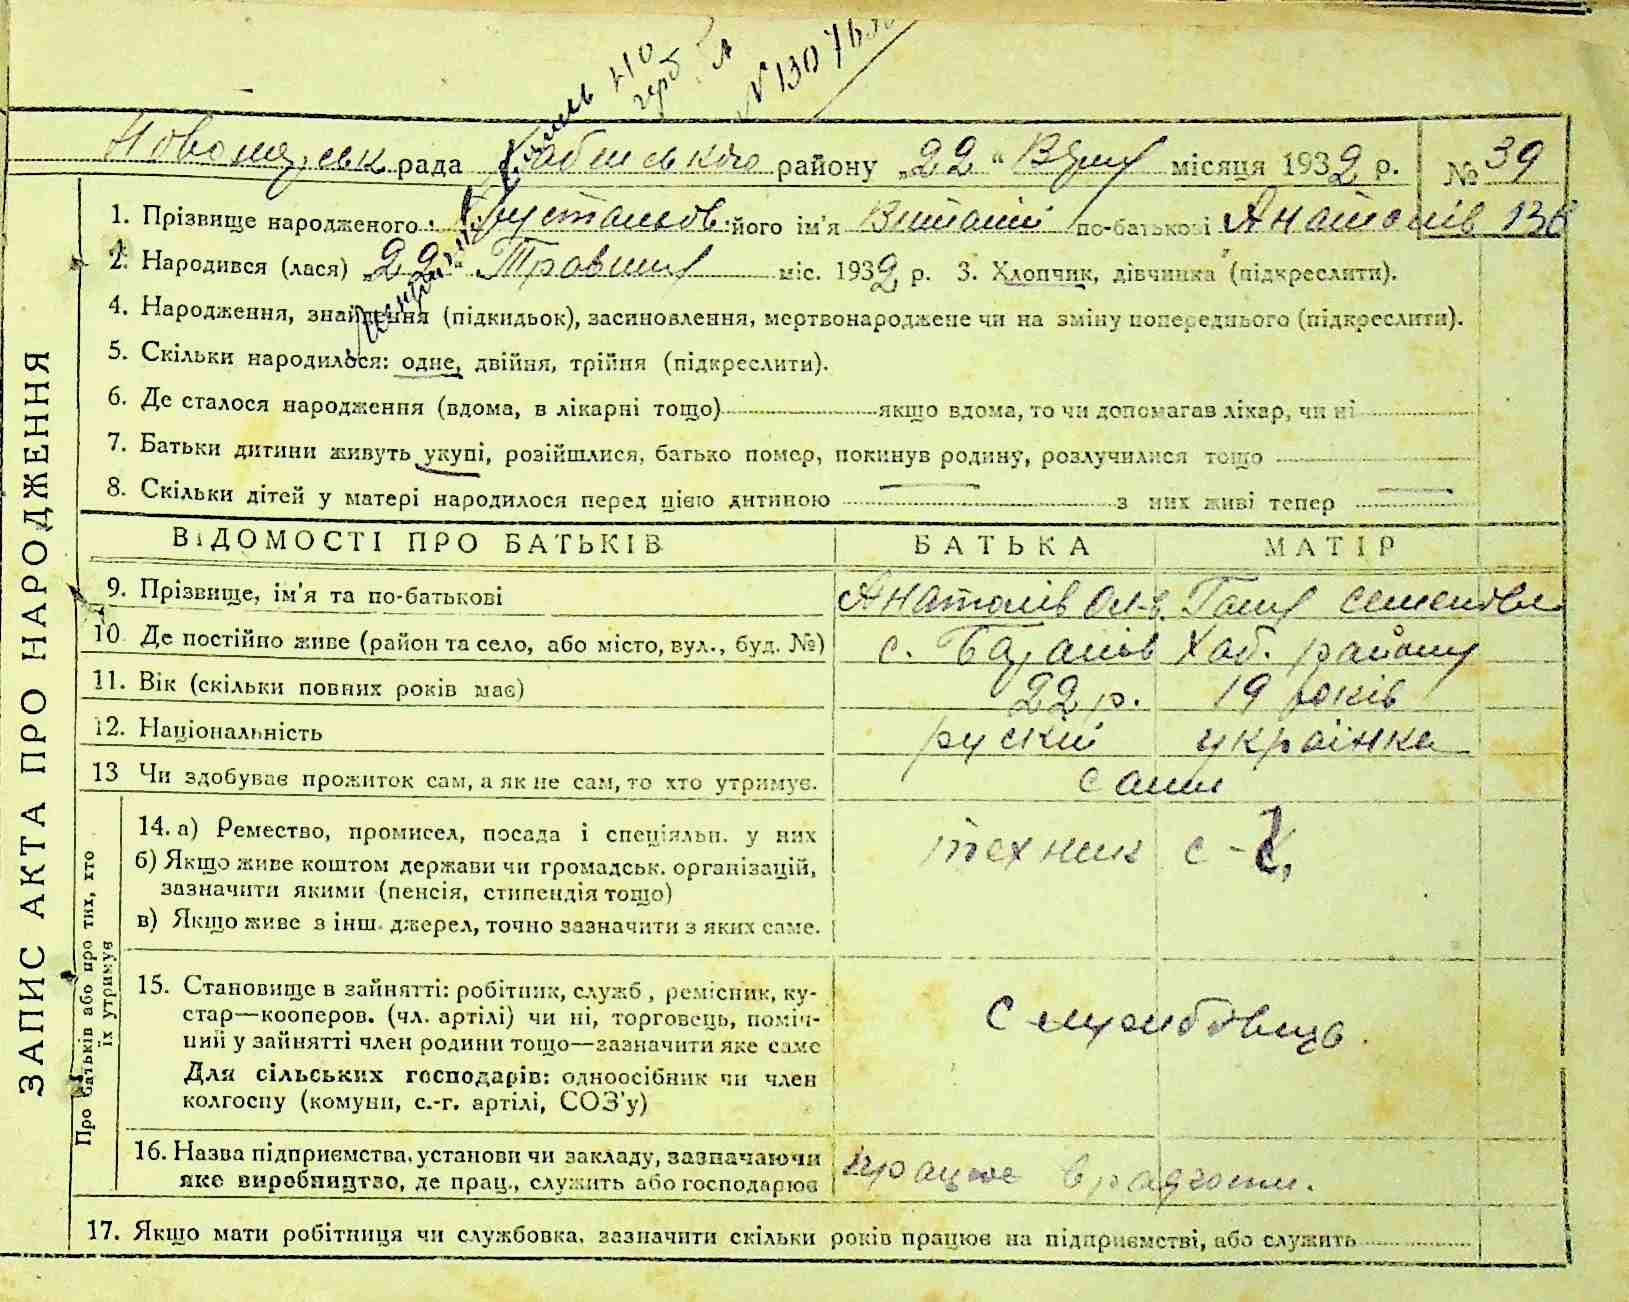 № 1307
рада району „22“ місяця 1932 р. № 39
1. Прізвище народженого його ім'я Віталій по-батькові
2. Народився (лася) „22“ Травня міс. 1932 р. 3. Хлопчик, дівчинка (підкреслити).
4. Народження, знайдення (підкидьок), засиновлення, мертвонароджене чи на зміну попереднього (підкреслити).
5. Скільки народилося: одне, двійня, трійня (підкреслити).
6. Де сталося народження (вдома, в лікарні тощо) якщо вдома, то чи допомагав лікар, чи ні
7. Батьки дитини живуть укупі, розійшлися, батько помер, покинув родину, розлучилися тощо
8. Скільки дітей у матері народилося перед цією дитиною — з них живі тепер —
ВІДОМОСТІ ПРО БАТЬКІВ БАТЬКА МАТІР
9. Прізвище, ім'я та по-батькові
10. Де постійно живе (район та село, або місто, вул., буд. №) с. Хаб. району
11. Вік (скільки повних років має) 22 р. 19 років
12. Національність руский українка
13 Чи здобуває прожиток сам, а як не сам, то хто утримує. сами
14. а) Ремество, промисел, посада і спеціяльн. у них технік
б) Якщо живе коштом держави чи громадськ. організацій,
зазначити якими (пенсія, стипендія тощо)
в) Якщо живе з інш. джерел, точно зазначити з яких саме.
15. Становище в зайнятті: робітник, служб., ремісник, ку-
стар—кооперов. (чл. артілі) чи ні, торговець, поміч-
ний у зайнятті член родини тощо—зазначити яке саме
Для сільських господарів: одноосібник чи член
колгоспу (комуни, с.-г. артілі, СОЗ'у)
службовець
16. Назва підприємства, установи чи закладу, зазначаючи
яке виробництво, де прац., служить або господарює
працює в
17. Якщо мати робітниця чи службовка, зазначити скільки років працює на підприємстві, або служить
ЗАПИС АКТА ПРО НАРОДЖЕННЯ
Про батьків або про тих, хто
їх утримує